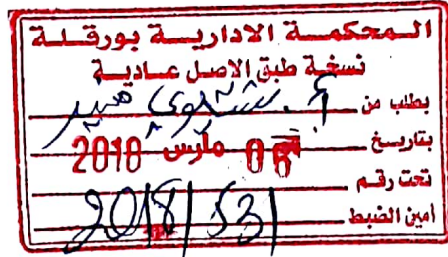 المحكمة الادارية بورقلة
نسخة طبق الاصل عادية
بطلب من أ.
بتاريخ 06 مارس 2018
تحت رقم
2018/531 أمين الضبط